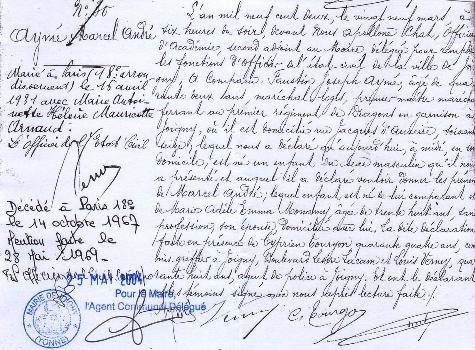 N° 60
Aymé Marcel André
Marié à Paris (18e arron
dissement) le
1931 avec Marie Antoi
nette
Arnaud.
L'Officier de l'Etat Civil
Décédé à Paris 18e
le 14 octobre 1967
Mention faite le
28 Mai 1969.
L'an mil neuf cent deux, le vingt neuf mars, à
six heures du soir, devant Nous Officier
d'Académie, second adjoint au Maire, délégué pour remplir
les fonctions d'officier de l'état civil de la ville de
Joigny, A Comparu Faustin Joseph Aymé, âgé de qua
rante deux ans, maréchal des logis, premier maître maréchal
ferrant au premier régiment de Dragons en garnison à
Joigny, où il est domicilié rue Jacques d'Auxerre,
lequel nous a déclaré qu'aujourd'hui, à midi, en son
domicile, est né un enfant du sexe masculin qu'il nous
a présenté et auquel il a déclaré vouloir donner les prénoms
de Marcel André; lequel enfant est né de lui comparant et
de Marie Emma Monamy, âgée de trente huit ans, sans
profession, son épouse, domiciliée avec lui. La dite déclaration
faite en présence de Cyprien Courgon, quarante quatre ans, com
mis greffier à Joigny, et Louis
ans, agent de police à Joigny. Et ont le déclarant
et les témoins signé avec nous après lecture faite.
25 MAI 2004
Pour le Maire,
l'Agent Communal Délégué
MAIRIE DE JOIGNY
(YONNE)